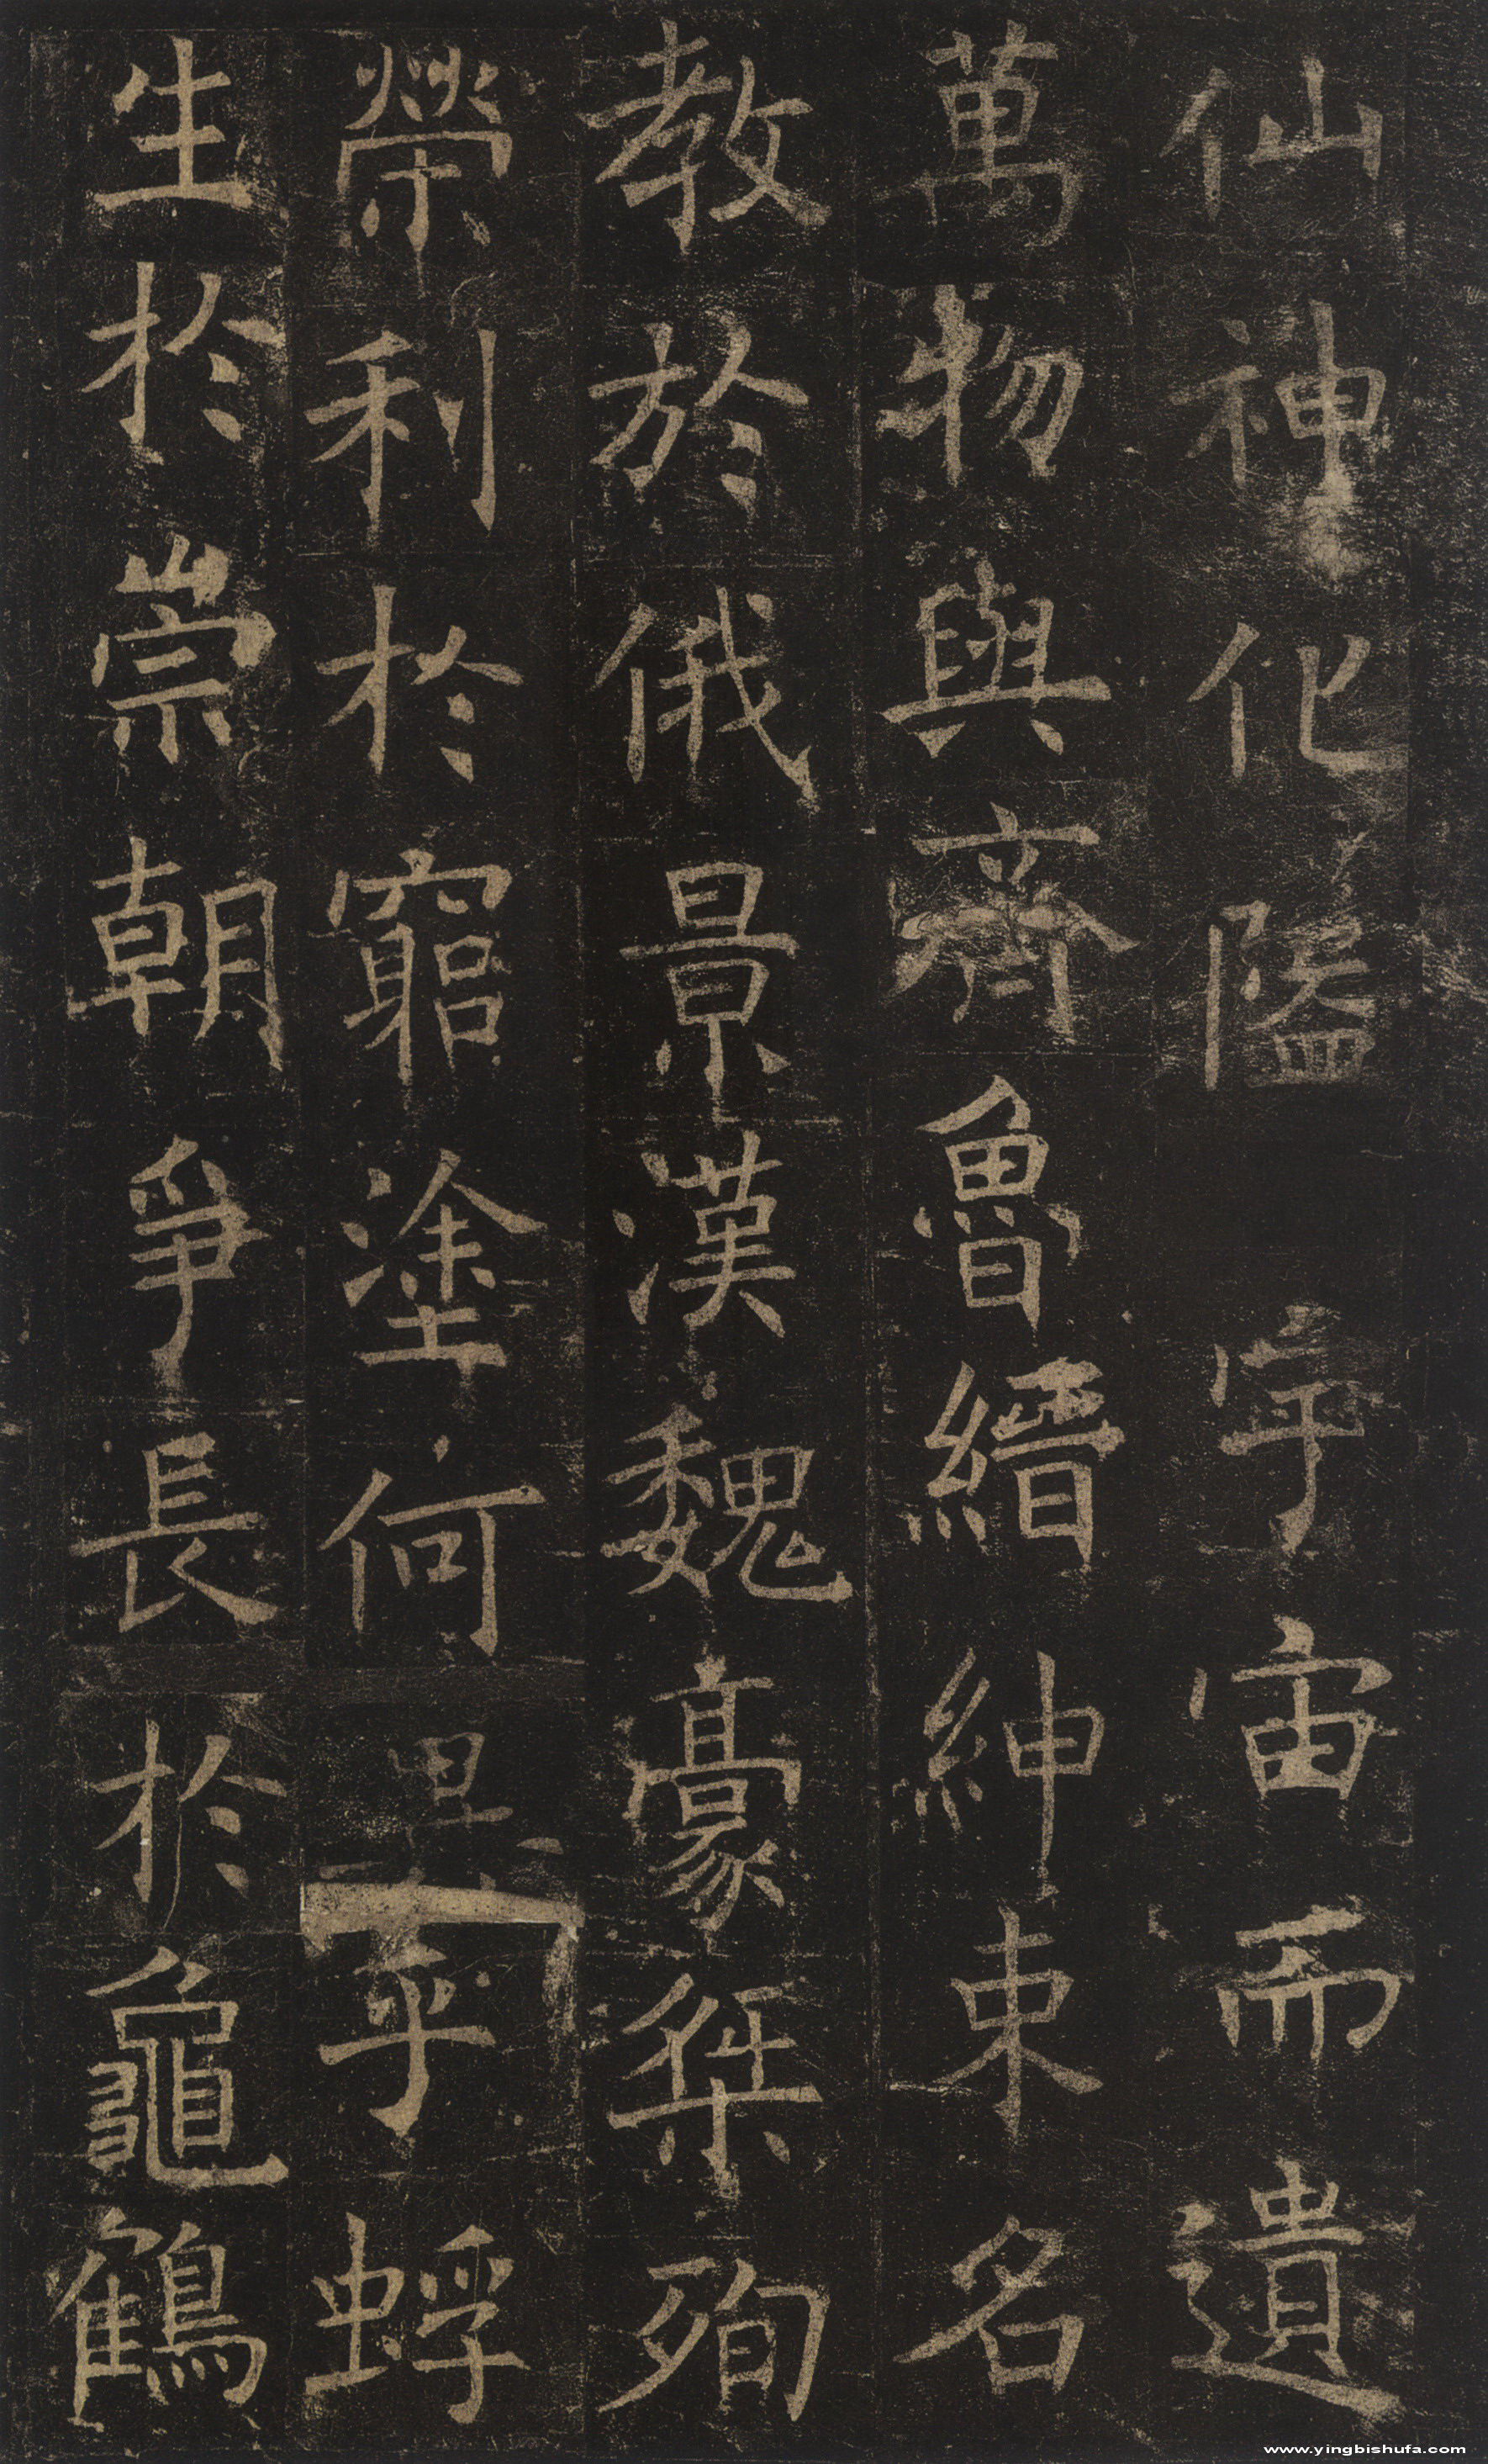 仙神化隘宇宙而遺
萬物與齊魯縉紳束名
教於俄景漢魏豪桀殉
榮利於窮塗何異乎蜉
生於崇朝爭長於龜鶴
www.yingbishufa.com